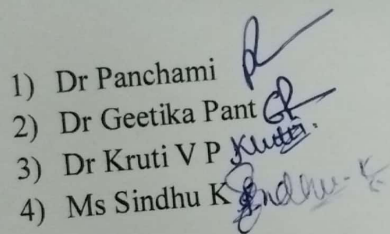 1) Dr Panchami
2) Dr Geetika Pant
3) Dr Kruti V P Kruti
4) Ms Sindhu K Sindhu-K